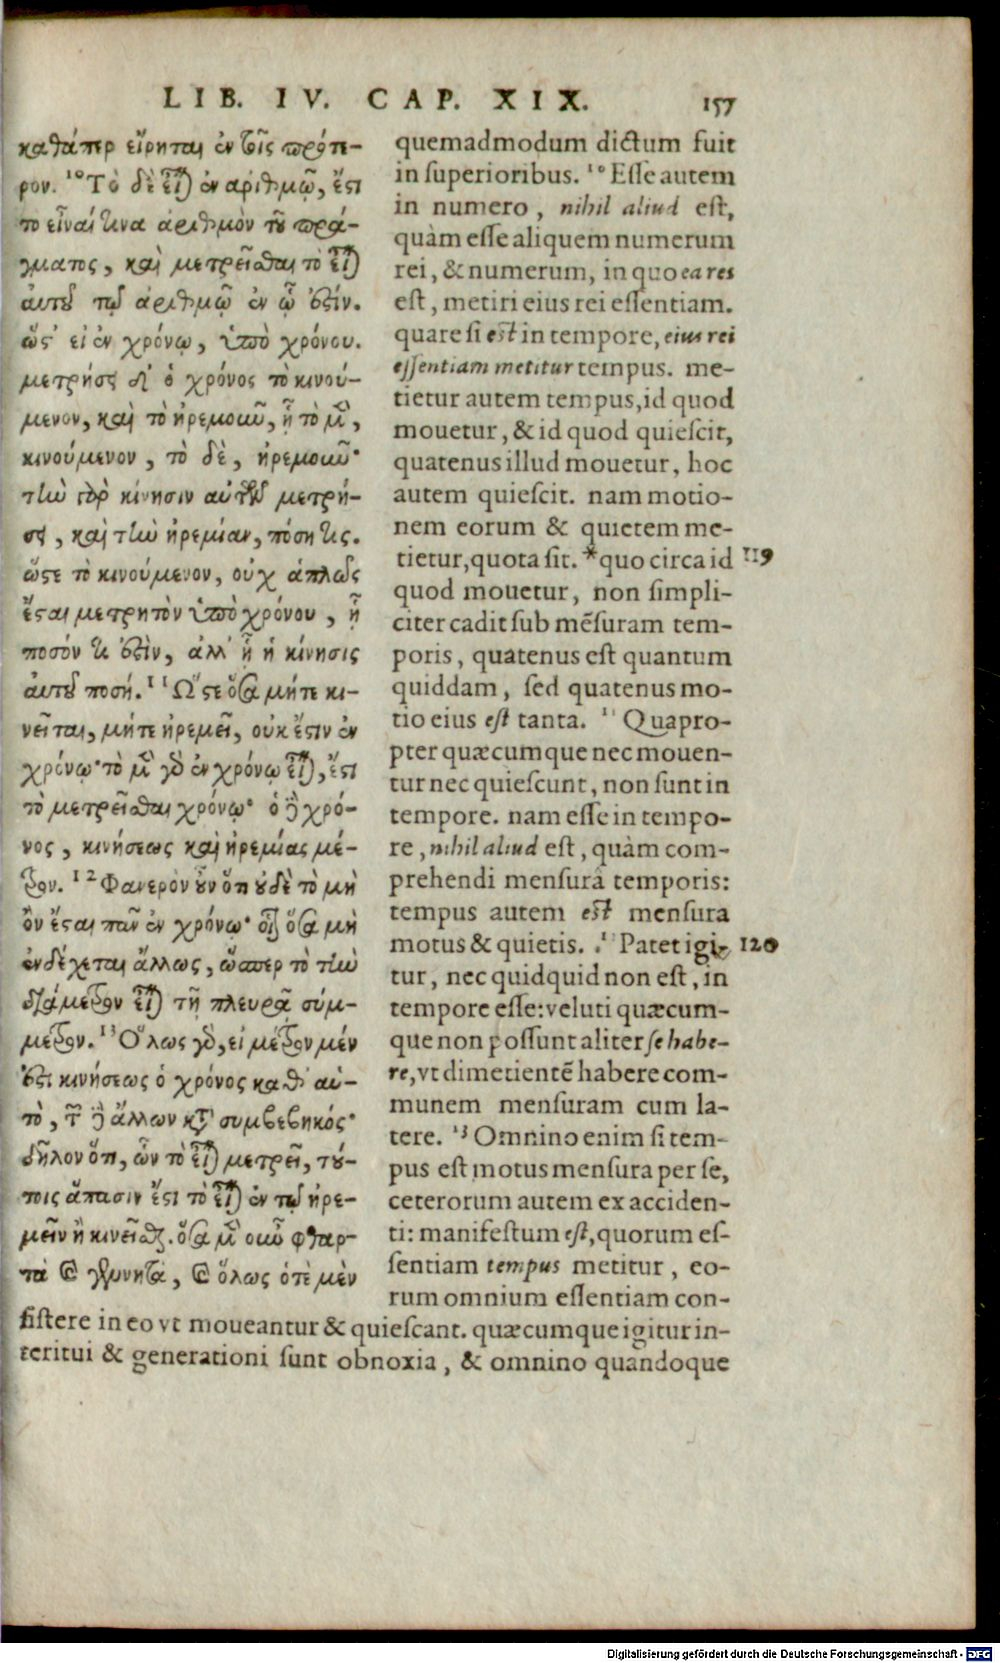 LIB. IV. CAP. XIX. 157
καθάπερ εἴρηται ἐν τοῖς πρότε-
ρον. ¹⁰Τὸ δὲ εἶναι ἐν ἀριθμῷ, ἔστι
τὸ εἶναί τινα ἀριθμὸν τοῦ πρά-
γματος, καὶ μετρεῖσθαι τὸ εἶναι
αὐτοῦ τῷ ἀριθμῷ ἐν ᾧ ὅστιν.
ὥστ' εἰ ἐν χρόνῳ, ὑπὸ χρόνου.
μετρήσει δ' ὁ χρόνος τὸ κινού-
μενον, καὶ τὸ ἠρεμοῦν, ᾗ τὸ μὲν,
κινούμενον, τὸ δὲ, ἠρεμοῦν·
τὴν γὰρ κίνησιν αὐτῶν μετρή-
σει, καὶ τὴν ἠρεμίαν, πόση τις.
ὥστε τὸ κινούμενον, οὐχ ἁπλῶς
ἔσται μετρητὸν ὑπὸ χρόνου, ᾗ
ποσόν τι ἐστὶν, ἀλλ' ᾗ ἡ κίνησις
αὐτοῦ ποσή. ¹¹Ὥστε ὅσα μήτε κι-
νεῖται, μήτε ἠρεμεῖ, οὐκ ἔστιν ἐν
χρόνῳ· τὸ μὲν γὰρ ἐν χρόνῳ εἶναι, ἔστι
τὸ μετρεῖσθαι χρόνῳ· ὁ δὲ χρό-
νος, κινήσεως καὶ ἠρεμίας μέ-
τρον. ¹²Φανερὸν οὖν ὅτι οὐδὲ τὸ μὴ
ὂν ἔσται πᾶν ἐν χρόνῳ· οἷον ὅσα μὴ
ἐνδέχεται ἄλλως, ὥσπερ τὸ τὴν
διάμετρον εἶναι τῇ πλευρᾷ σύμ-
μετρον. ¹³Ὅλως γὰρ, εἰ μέτρον μέν
ἐστι κινήσεως ὁ χρόνος καθ' αὑ-
τὸ, τῶν δὲ ἄλλων κατὰ συμβεβηκός·
δῆλον ὅτι, ὧν τὸ εἶναι μετρεῖ, τού-
τοις ἅπασιν ἔσται τὸ εἶναι ἐν τῷ ἠρε-
μεῖν ἢ κινεῖσθαι. ὅσα μὲν οὖν φθαρ-
τὰ καὶ γεννητὰ, καὶ ὅλως ὁτὲ μὲν
quemadmodum dictum fuit
in superioribus. ¹⁰Esse autem
in numero, nihil aliud est,
quàm esse aliquem numerum
rei, & numerum, in quo ea res
est, metiri eius rei essentiam.
quare si est in tempore, eius rei
essentiam metitur tempus. me-
tietur autem tempus, id quod
mouetur, & id quod quiescit,
quatenus illud mouetur, hoc
autem quiescit. nam motio-
nem eorum & quietem me-
tietur, quota sit. *quo circa id 119
quod mouetur, non simpli-
citer cadit sub mẽsuram tem-
poris, quatenus est quantum
quiddam, sed quatenus mo-
tio eius est tanta. ¹¹ Quapro-
pter quæcumque nec mouen-
tur nec quiescunt, non sunt in
tempore. nam esse in tempo-
re, nihil aliud est, quàm com-
prehendi mensurâ temporis:
tempus autem est mensura
motus & quietis. Patet igi- 120
tur, nec quidquid non est, in
tempore esse: veluti quæcum-
que non possunt aliter se habe-
re, vt dimetientẽ habere com-
munem mensuram cum la-
tere. ¹³ Omnino enim si tem-
pus est motus mensura per se,
ceterorum autem ex acciden-
ti: manifestum est, quorum es-
sentiam tempus metitur, eo-
rum omnium essentiam con-
sistere in eo vt moueantur & quiescant. quæcumque igitur in-
teritui & generationi sunt obnoxia, & omnino quandoque
Digitalisierung gefördert durch die Deutsche Forschungsgemeinschaft - DFG